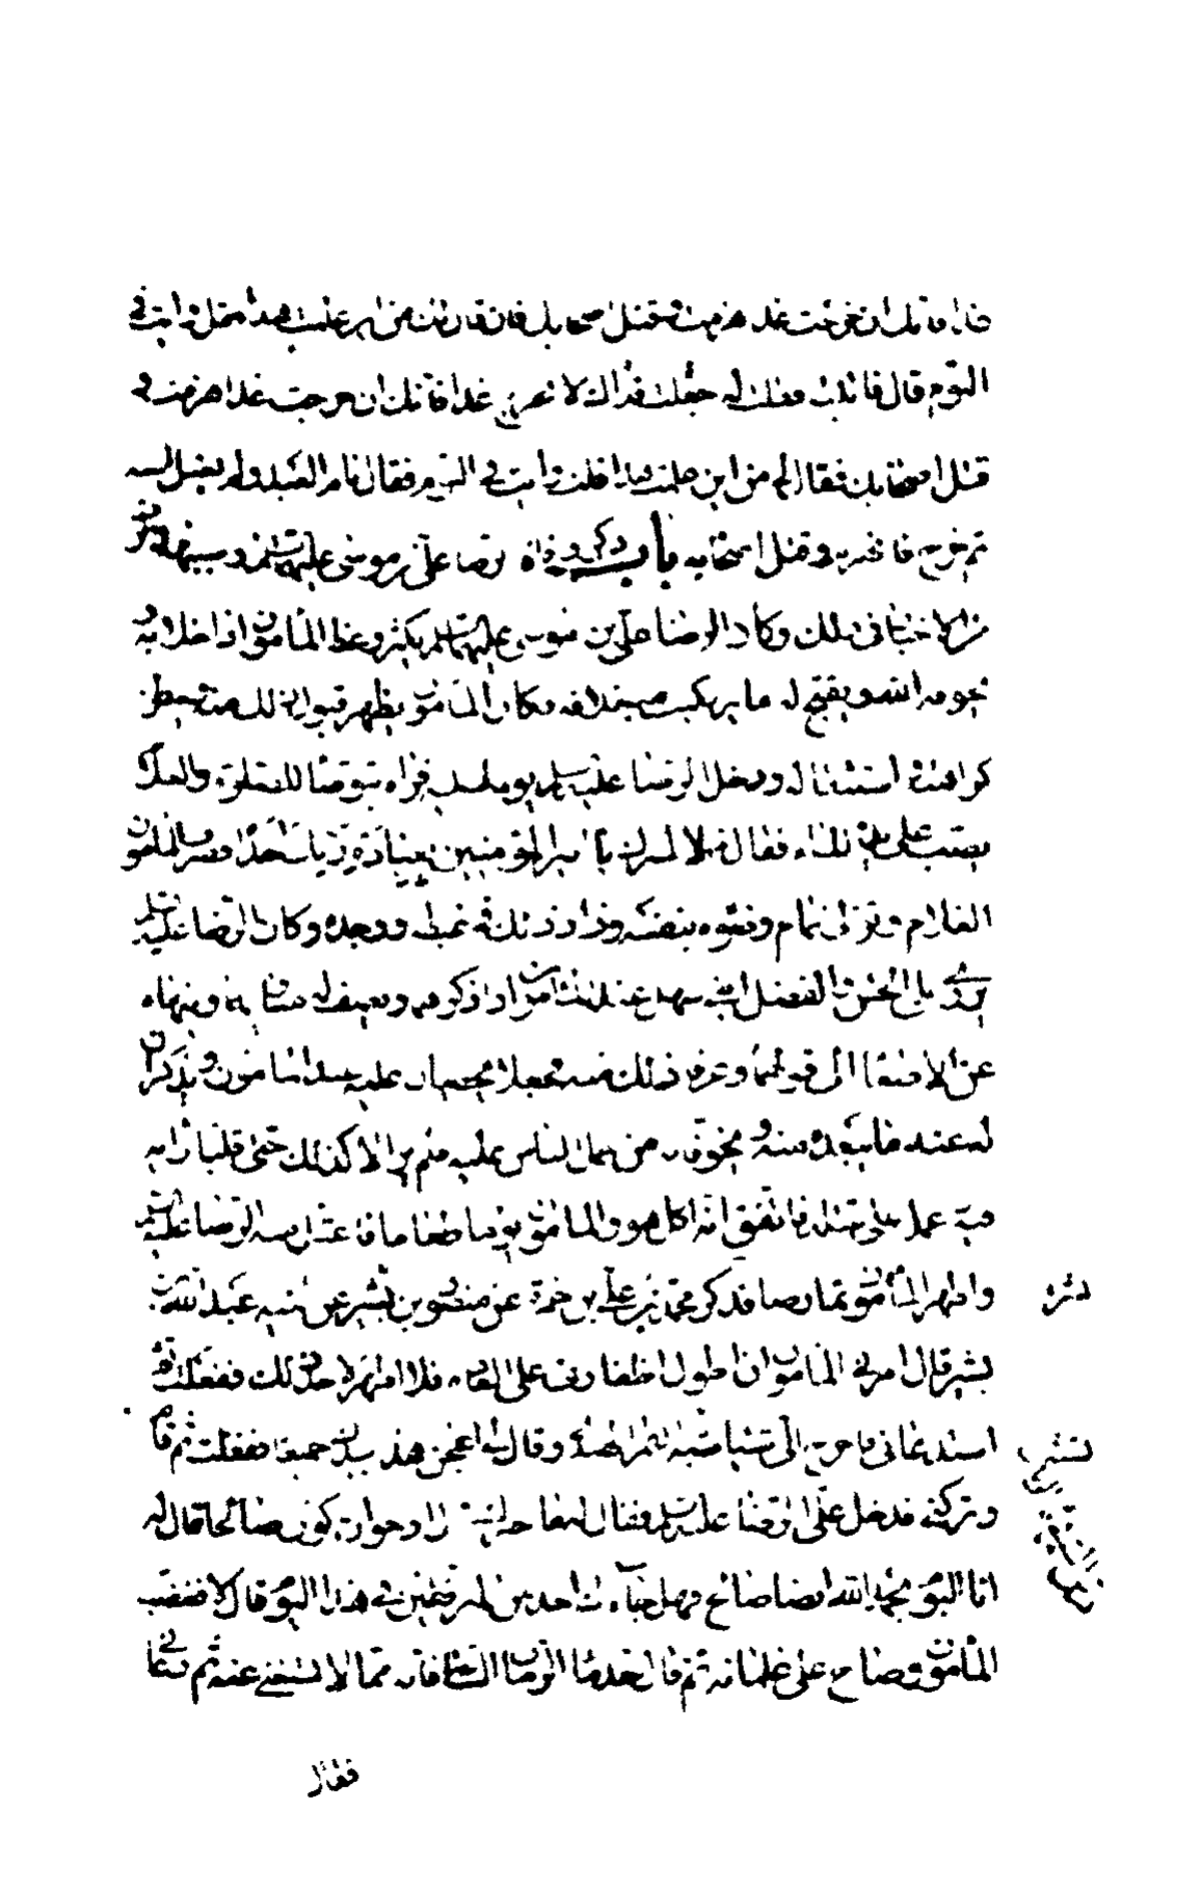 غدا فانك ان خرجت غدا هزمت وقتل اصحابك فان قال لك من اين علمت هذا فقل رايت في
النوم قال فاتيته فقلت له جعلت فداك لا تخرج غدا فانك ان خرجت غدا هزمت و
قتل اصحابك فقال لي من اين علمت هذا قلت رايت في النوم فقال نام العبد ولم يغسل استه
ثم خرج فانهزم وقتل اصحابه باب ذكر وفاة الرضا علي بن موسى عليهما السلم وسببها وطرف
من الاخبار في ذلك وكان الرضا علي بن موسى عليهما السلم يكثر وعظ المأمون اذا خلا به و
يخوفه الله ويقبح له ما يرتكب من خلافه وكان المأمون يظهر قبول ذلك منه ويبطن
كراهته واستثقاله ودخل الرضا عليه السلم يوما عليه فراه يتوضأ للصلوة والغلام
يصب على يده الماء فقال لا تشرك يا امير المؤمنين بعبادة ربك احدا فصرف المأمون
الغلام وتولى تمام وضوءه بنفسه وزاد ذلك في غيظه ووجده وكان الرضا عليه السلم
يزري على الحسن والفضل ابني سهل عند المأمون اذا ذكرهما ويصف له مساويهما وينهاه
عن الاصغاء الى قولهما وعرفا ذلك منه فجعلا يحطبان عليه عند المأمون ويذكران
له عنه ما يبعده منه و يخوفانه من حمل الناس عليه فلم يزالا كذلك حتى قلبا رايه
فيه عمل على قتله فاتفق انه اكل هو والمأمون يوما طعاما فاعتل منه الرضا عليه السلم
واظهر المأمون تمارضا فذكر محمد بن علي بن حمزة عن منصور بن بشير عن اخيه عبد الله بن
بشير قال امرني المأمون ان اطول اظفاري على العادة فلا اظهر لاحد ذلك ففعلت ثم
استدعاني فاخرج الي شيئا شبه التمر الهندي وقال لي اعجن هذا بيديك جميعا ففعلت ثم قام
وتركني فدخل على الرضا عليه السلم فقال له ما خبرك قال ارجو ان يكون صالحا قال له
انا اليوم بحمد الله ايضا صالح فهل جاءك احد من المترفقين في هذا اليوم قال لا فغضب
المأمون وصاح على غلمانه ثم قال خذ ماء الرمان الساعة فانه مما لا يستغنى عنه ثم دعاني
فقال